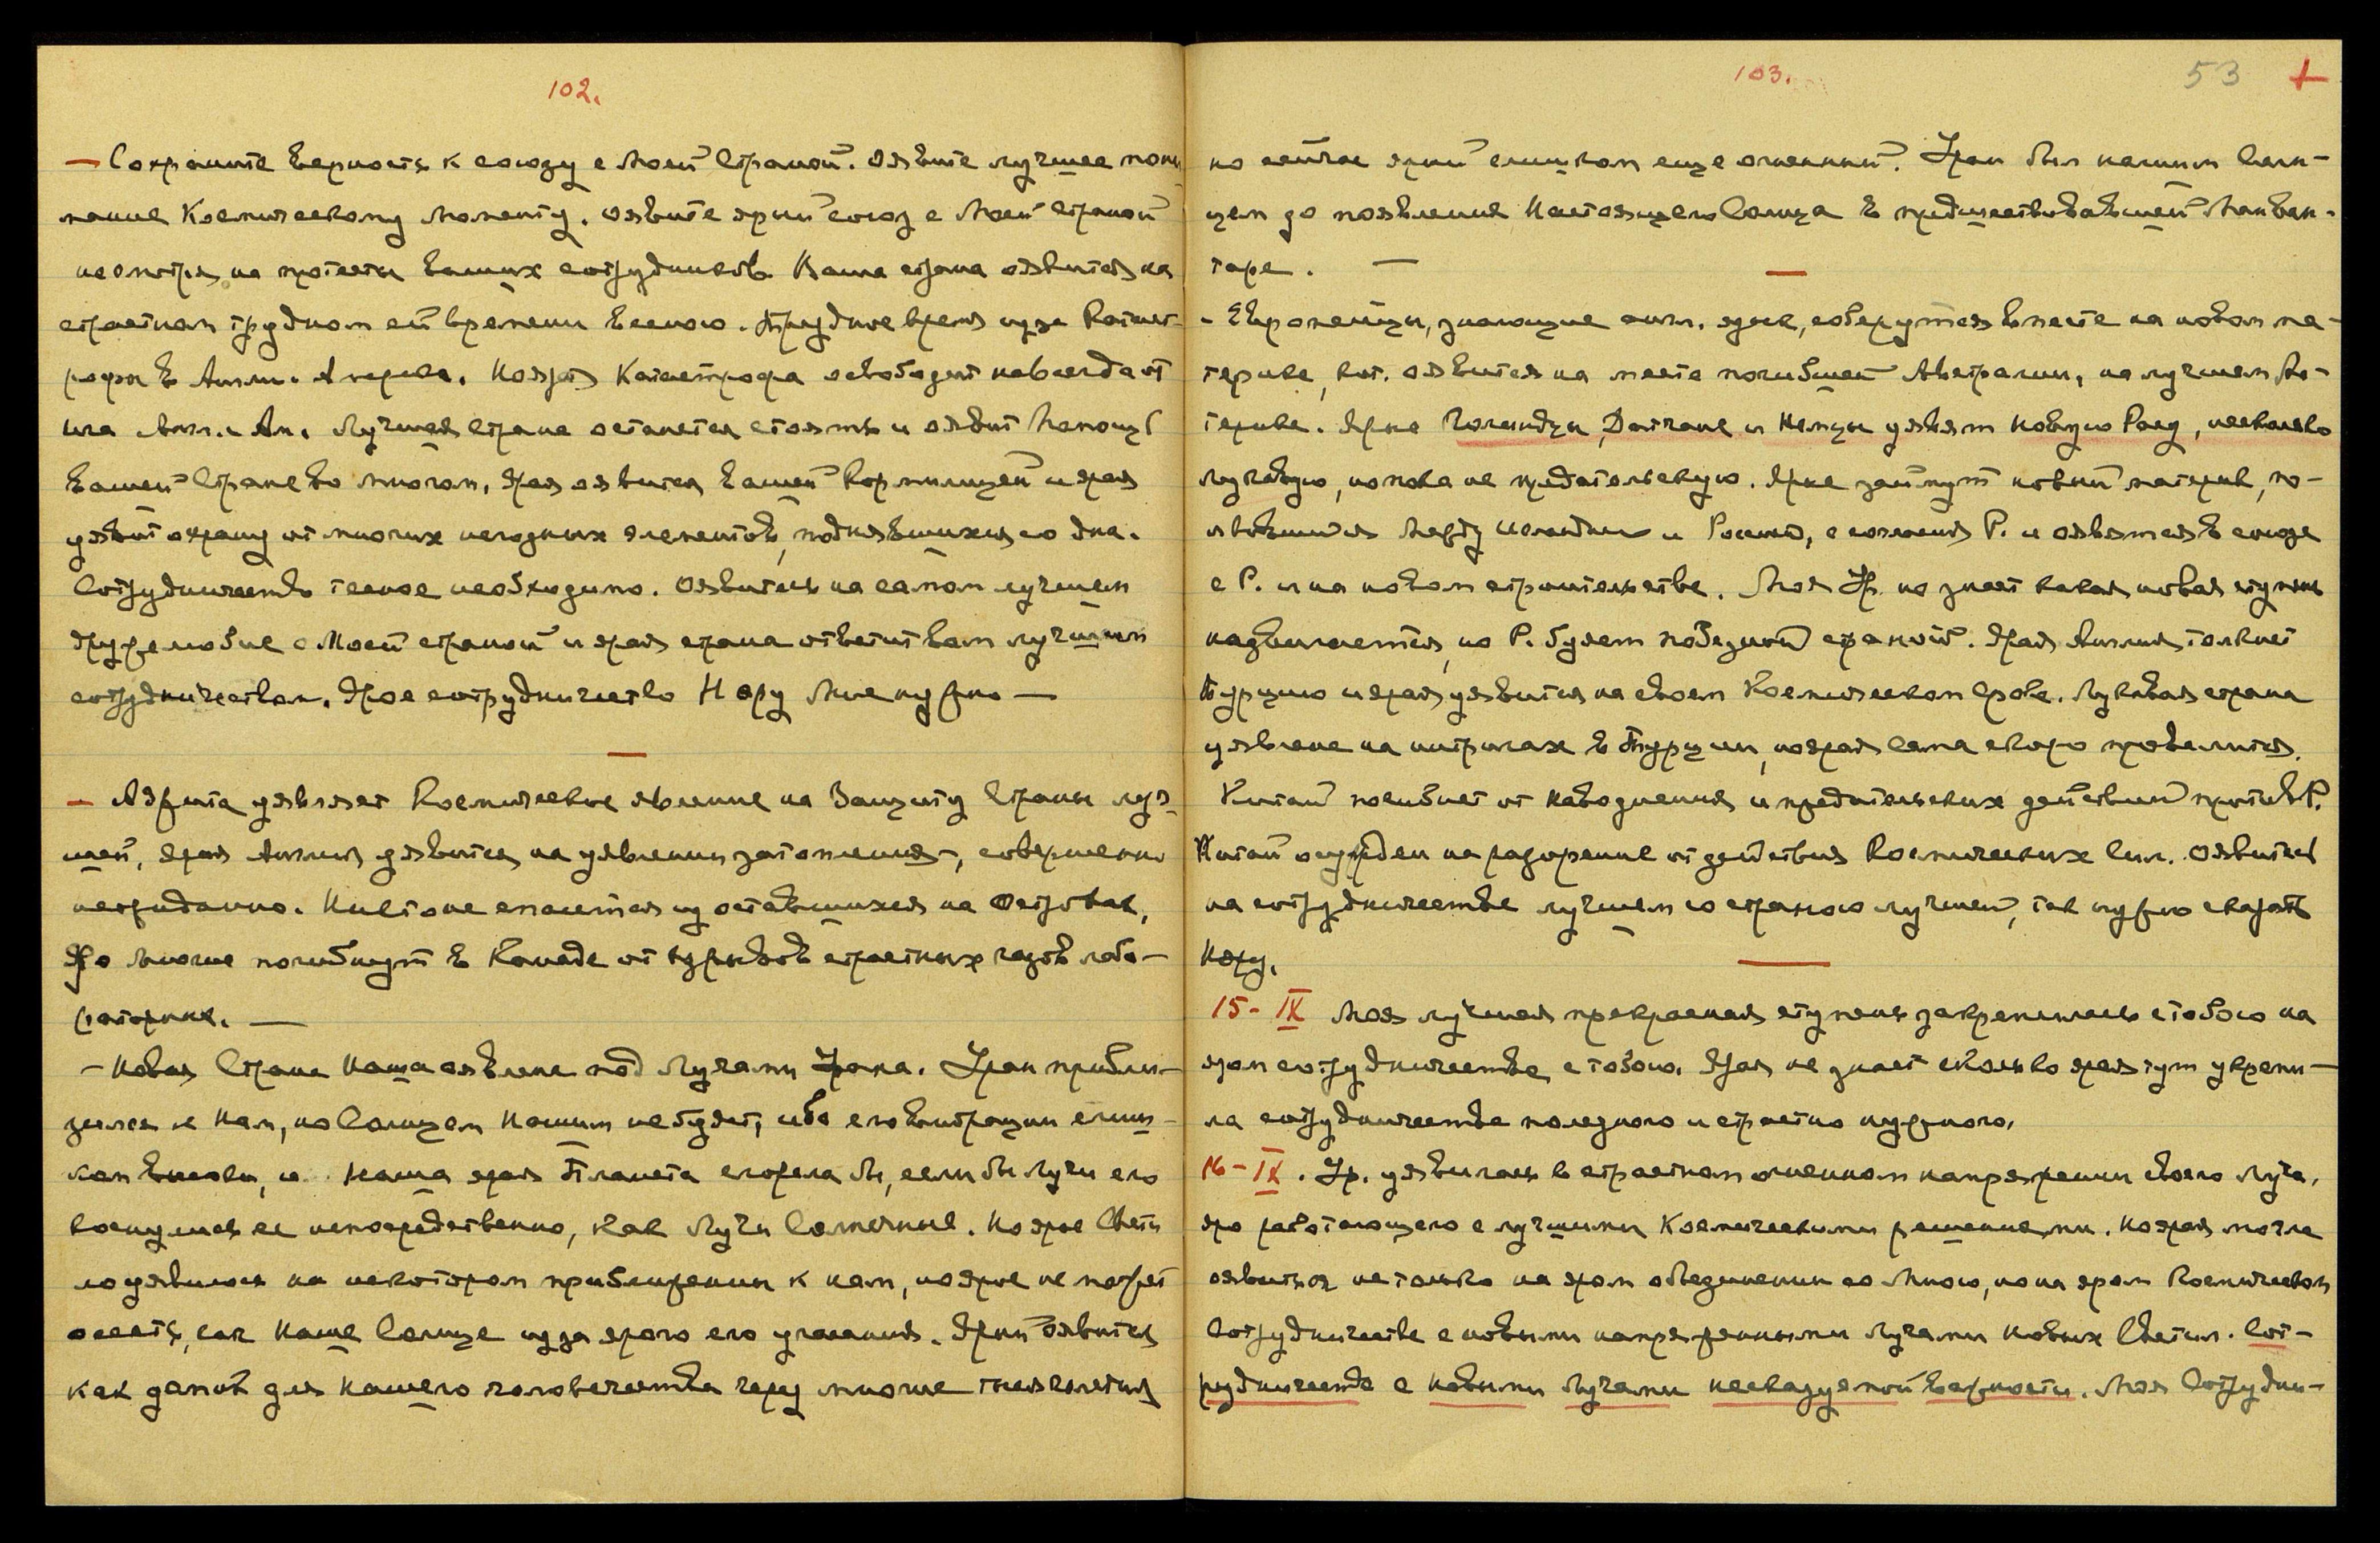 102.
— Сохраните верность к союзу с Моей Страной. Оявите лучшее пони-
мание Космическому Моменту. Оявите ярый союз с Моей страной
несмотря на протесты ваших сотрудников. Ваша страна оявится на
страстном трудном ей времени весною. Трудное время из-за Катаст-
рофы в Англии и Америке. Но ярая Катастрофа освободит навсегда от
ига Англ. и Ам. Лучшая Страна останется стоять и оявит Помощь
вашей Стране во многом. Ярая оявится вашей Кормилицей и ярая
уявит охрану от многих негодных элементов, поднявшихся со дна.
Сотрудничество тесное необходимо. Оявитесь на самом лучшем
дружелюбие с Моей страной и ярая страна ответит вам лучшим
сотрудничеством. Ярое сотрудничество Неру Мне нужно —
— уявляет Космическое явление на Защиту Страны луч-
шей, ярая Англия уявится на уявлении затопления, совершенно
неожиданно. Никто не спасется из оставшихся на Островах,
Яро многие погибнут в Канаде от взрывов страстных газов лабо-
раторных. —
— Новая Страна Наша оявлена под Лучами Урана. Уран прибли-
зился к нам, но Солнцем Нашим не будет, ибо его вибрации слиш-
ком высоки, и Наша ярая Планета сгорела бы, если бы Лучи его
коснулись ее непосредственно, как Лучи Солнечные. Но ярое Свети-
ло уявилось на некотором приближении к нам, но ярое не может
осесть, как Наше Солнце из за ярого его удаления. Ярый оявится
как для нашего человечества через многие тысячелетия

103. 53 +
но сейчас ярый слишком еще огненный. Уран был нашим Солн-
цем до появления Настоящего Солнца в предшествовавшей Манван-
таре. —
- Европейцы, знающие англ. язык, соберутся вместе на новом ма-
терике, кот. оявится на месте погибшей Австралии, на лучшем Ма-
терике. Ярые Голандцы, Датчане и Немцы уявят новую Расу, несколько
лукавую, но пока не предательскую. Ярые займут новый материк, по-
явившийся между Исландией и Россией, с согласия Р. и оявятся в союзе
с Р. и на новом строительстве. Моя Ур. не знает какая новая ступень
надвигается, но Р. будет победной страной. Ярая Англия толкнет
Турцию и ярая уявится на своем Космическом Сроке. Лукавая страна
уявлена на интригах в Турции, но ярая сама скоро провалится.
Китай погибнет от наводнения и предательских действий против Р.
Китай осужден на разорение от действия Космических Сил. Оявитесь
на сотрудничестве лучшем со страною лучшей, так нужно сказать
Неру.
15-IX Моя лучшая прекрасная ступень закрепилась с тобою на
яром сотрудничестве с тобою. Ярая не знает сколько ярая тут укрепи-
ла сотрудничества полезного и страстно нужного.
16-IX. Ур. уявилась в страстном огненном напряжении своего Луча,
яро работающего с лучшими Космическими решениями. Но ярая могла
оявиться не только на яром объединении со Мною, но на яром Космическом
Сотрудничестве с новыми напряженными Лучами новых Светил. Сот-
рудничество с новыми Лучами несказуемой важности. Моя Сотрудни-